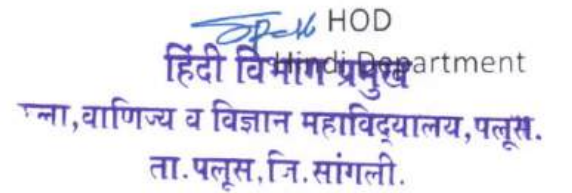 HOD
Hindi Department
हिंदी विभाग प्रमुख
कला,वाणिज्य व विज्ञान महाविद्यालय,पलूस.
ता.पलूस,जि.सांगली.